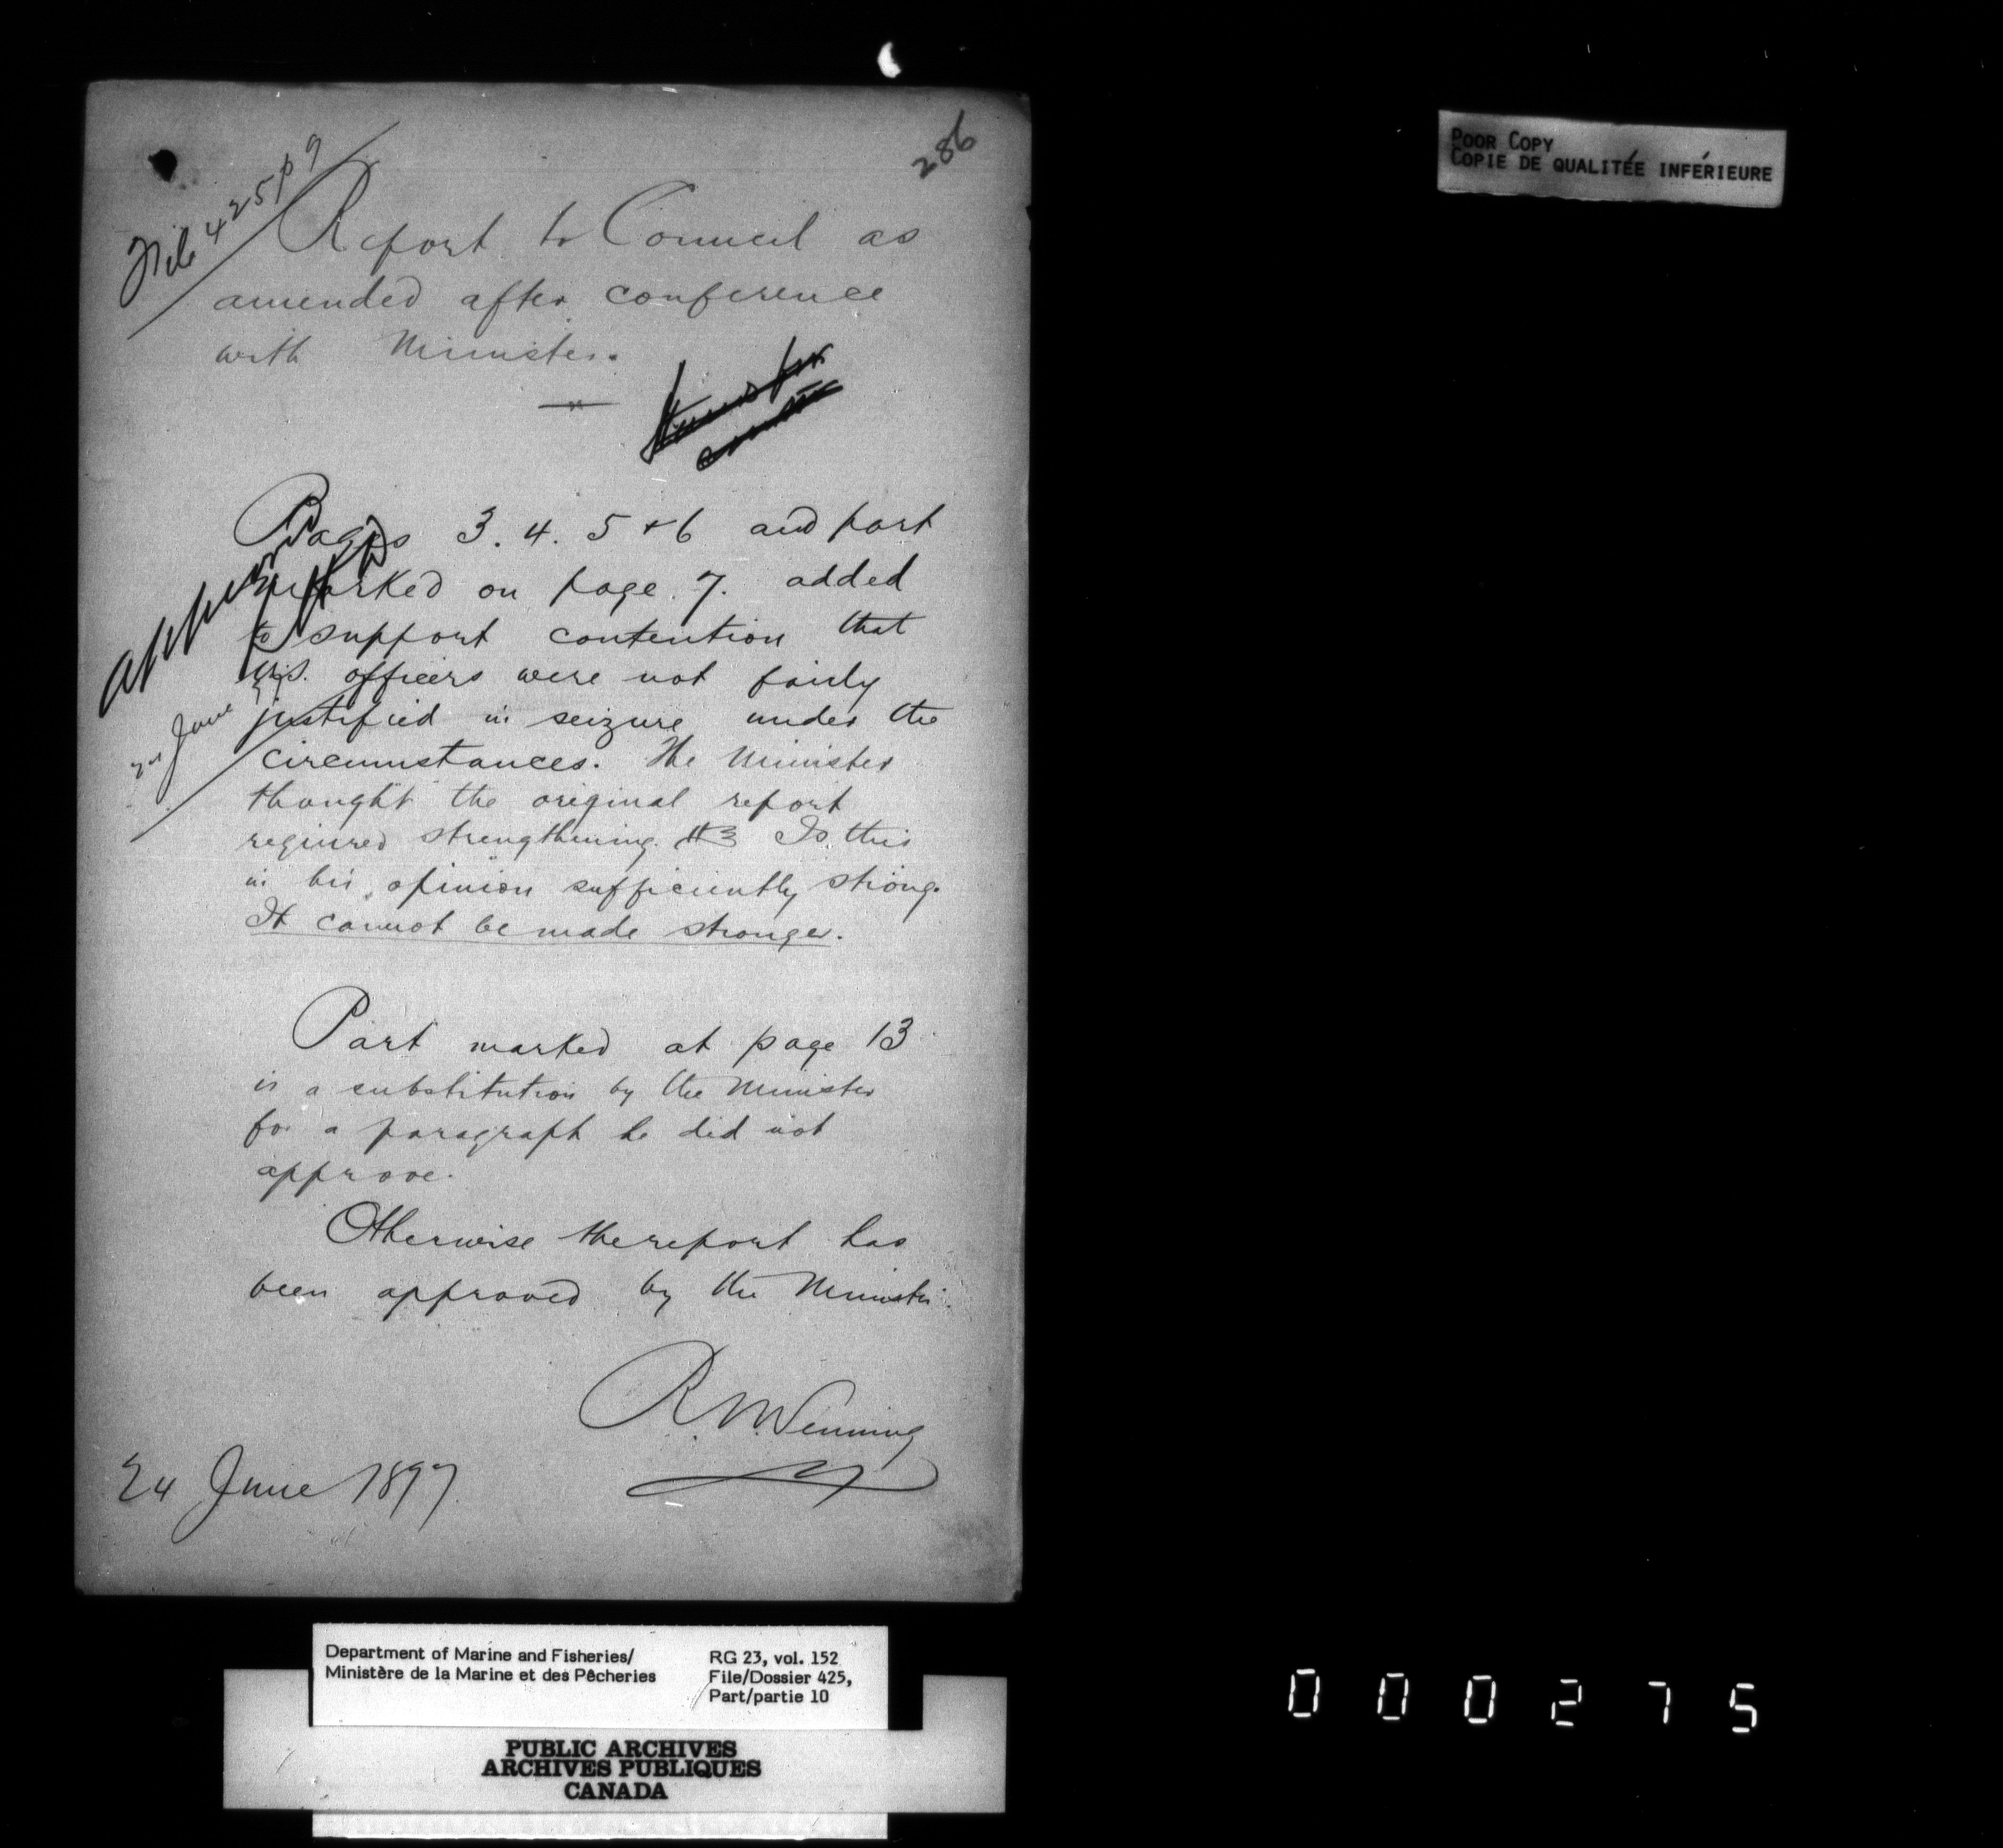 286
File 425 p 9
Report to Council as
amended after conference
with Minister.
Pages 3. 4. 5 & 6 and part
marked on page 7. added
to support contention that
U.S. officers were not fairly
justified in seizure under the
circumstances. The Minister
thought the original report
required strengthening. Is this
in his opinion sufficiently strong.
It cannot be made stronger.
Part marked at page 13
is a substitution by the Minister
for a paragraph he did not
approve.
Otherwise the report has
been approved by the Minister.
R. N. Venning
24 June 1897
approved
June
POOR COPY
COPIE DE QUALITÉE INFÉRIEURE
Department of Marine and Fisheries/
Ministère de la Marine et des Pêcheries
RG 23, vol. 152
File/Dossier 425,
Part/partie 10
PUBLIC ARCHIVES
ARCHIVES PUBLIQUES
CANADA
000275